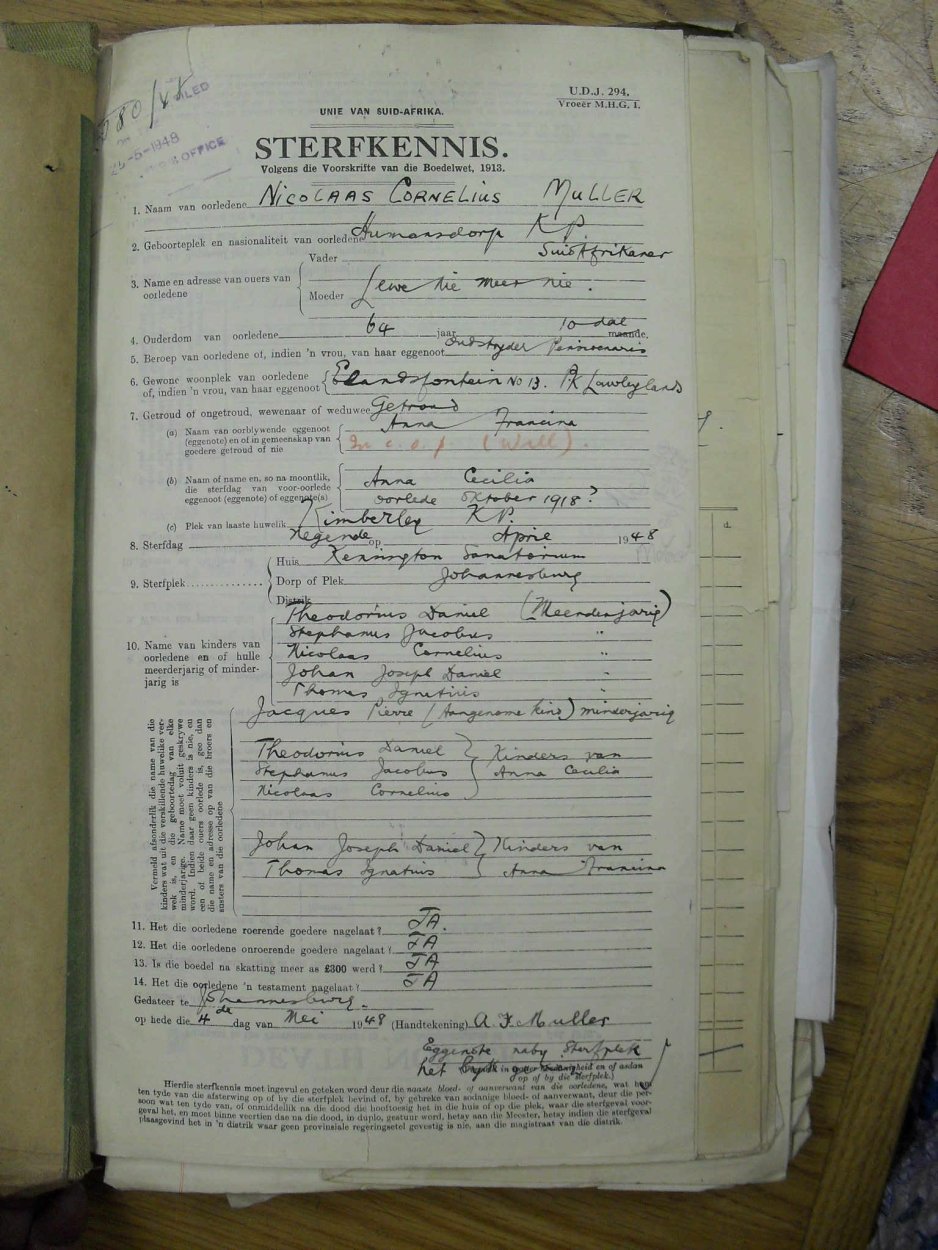 U.D.J. 294.
Vroeër M.H.G. I.
580/48
FILED
25-5-1948
OFFICE
UNIE VAN SUID-AFRIKA.
STERFKENNIS.
Volgens die Voorskrifte van die Boedelwet, 1913.
1. Naam van oorledene NICOLAAS CORNELIUS MULLER
2. Geboorteplek en nasionaliteit van oorledene Humansdorp K.P.
Suid Afrikaner
3. Name en adresse van ouers van oorledene
Vader
Moeder Lewe nie meer nie.
4. Ouderdom van oorledene 64 jaar 10 dae maande.
5. Beroep van oorledene of, indien 'n vrou, van haar eggenoot Oudstryder Pensioenaris
6. Gewone woonplek van oorledene of, indien 'n vrou, van haar eggenoot Elandsfontein No 13. P.K. Lawleylands
7. Getroud of ongetroud, wewenaar of weduwee Getroud
(a) Naam van oorblywende eggenoot (eggenote) en of in gemeenskap van goedere getroud of nie Anna Francina
In c. o. p (Will).
(b) Naam of name en, so na moontlik, die sterfdag van voor-oorlede eggenoot (eggenote) of eggenote(s) Anna Cecilia
oorlede Oktober 1918?
(c) Plek van laaste huwelik Kimberley K.P.
8. Sterfdag negende op April 1948
9. Sterfplek
Huis Kensington Sanatorium
Dorp of Plek Johannesburg
Distrik
10. Name van kinders van oorledene en of hulle meerderjarig of minderjarig is
Theodorius Daniel (Meerderjarig)
Stephanus Jacobus "
Nicolaas Cornelius "
Johan Joseph Daniel "
Thomas Ignatius "
Jacques Pierre (Aangenome kind) minderjarig
Vermeld afsonderlik die name van die kinders wat uit die verskillende huwelike verwek is, en die geboortedag van elke minderjarige. Name moet voluit geskrywe word. Indien daar geen kinders is nie, en een of beide ouers oorlede is, gee dan die name en adresse op van die broers en susters van die oorledene
Theodorius Daniel } Kinders van
Stephanus Jacobus } Anna Cecilia
Nicolaas Cornelius }
Johan Joseph Daniel } Kinders van
Thomas Ignatius } Anna Francina
11. Het die oorledene roerende goedere nagelaat? JA.
12. Het die oorledene onroerende goedere nagelaat? JA
13. Is die boedel na skatting meer as £300 werd? JA
14. Het die oorledene 'n testament nagelaat? JA
Gedateer te Johannesburg
op hede die 4de dag van Mei 1948 (Handtekening) A. F. Muller
Eggenote naby Sterfplek
het
of by die sterfplek.)
Hierdie sterfkennis moet ingevul en geteken word deur die naaste bloed- of aanverwant van die oorledene, wat hom
ten tyde van die afsterwing op of by die sterfplek bevind of, by gebreke van sodanige bloed- of aanverwant, deur die per-
soon wat ten tyde van, of onmiddellik na die dood die hooftoesig het in die huis of op die plek, waar die sterfgeval voor-
geval het, en moet binne veertien dae na die dood, in duplo, gestuur word, hetsy aan die Meester, hetsy indien die sterfgeval
plaasgevind het in 'n distrik waar geen provinsiale regeringsetel gevestig is nie, aan die magistraat van die distrik.
d.